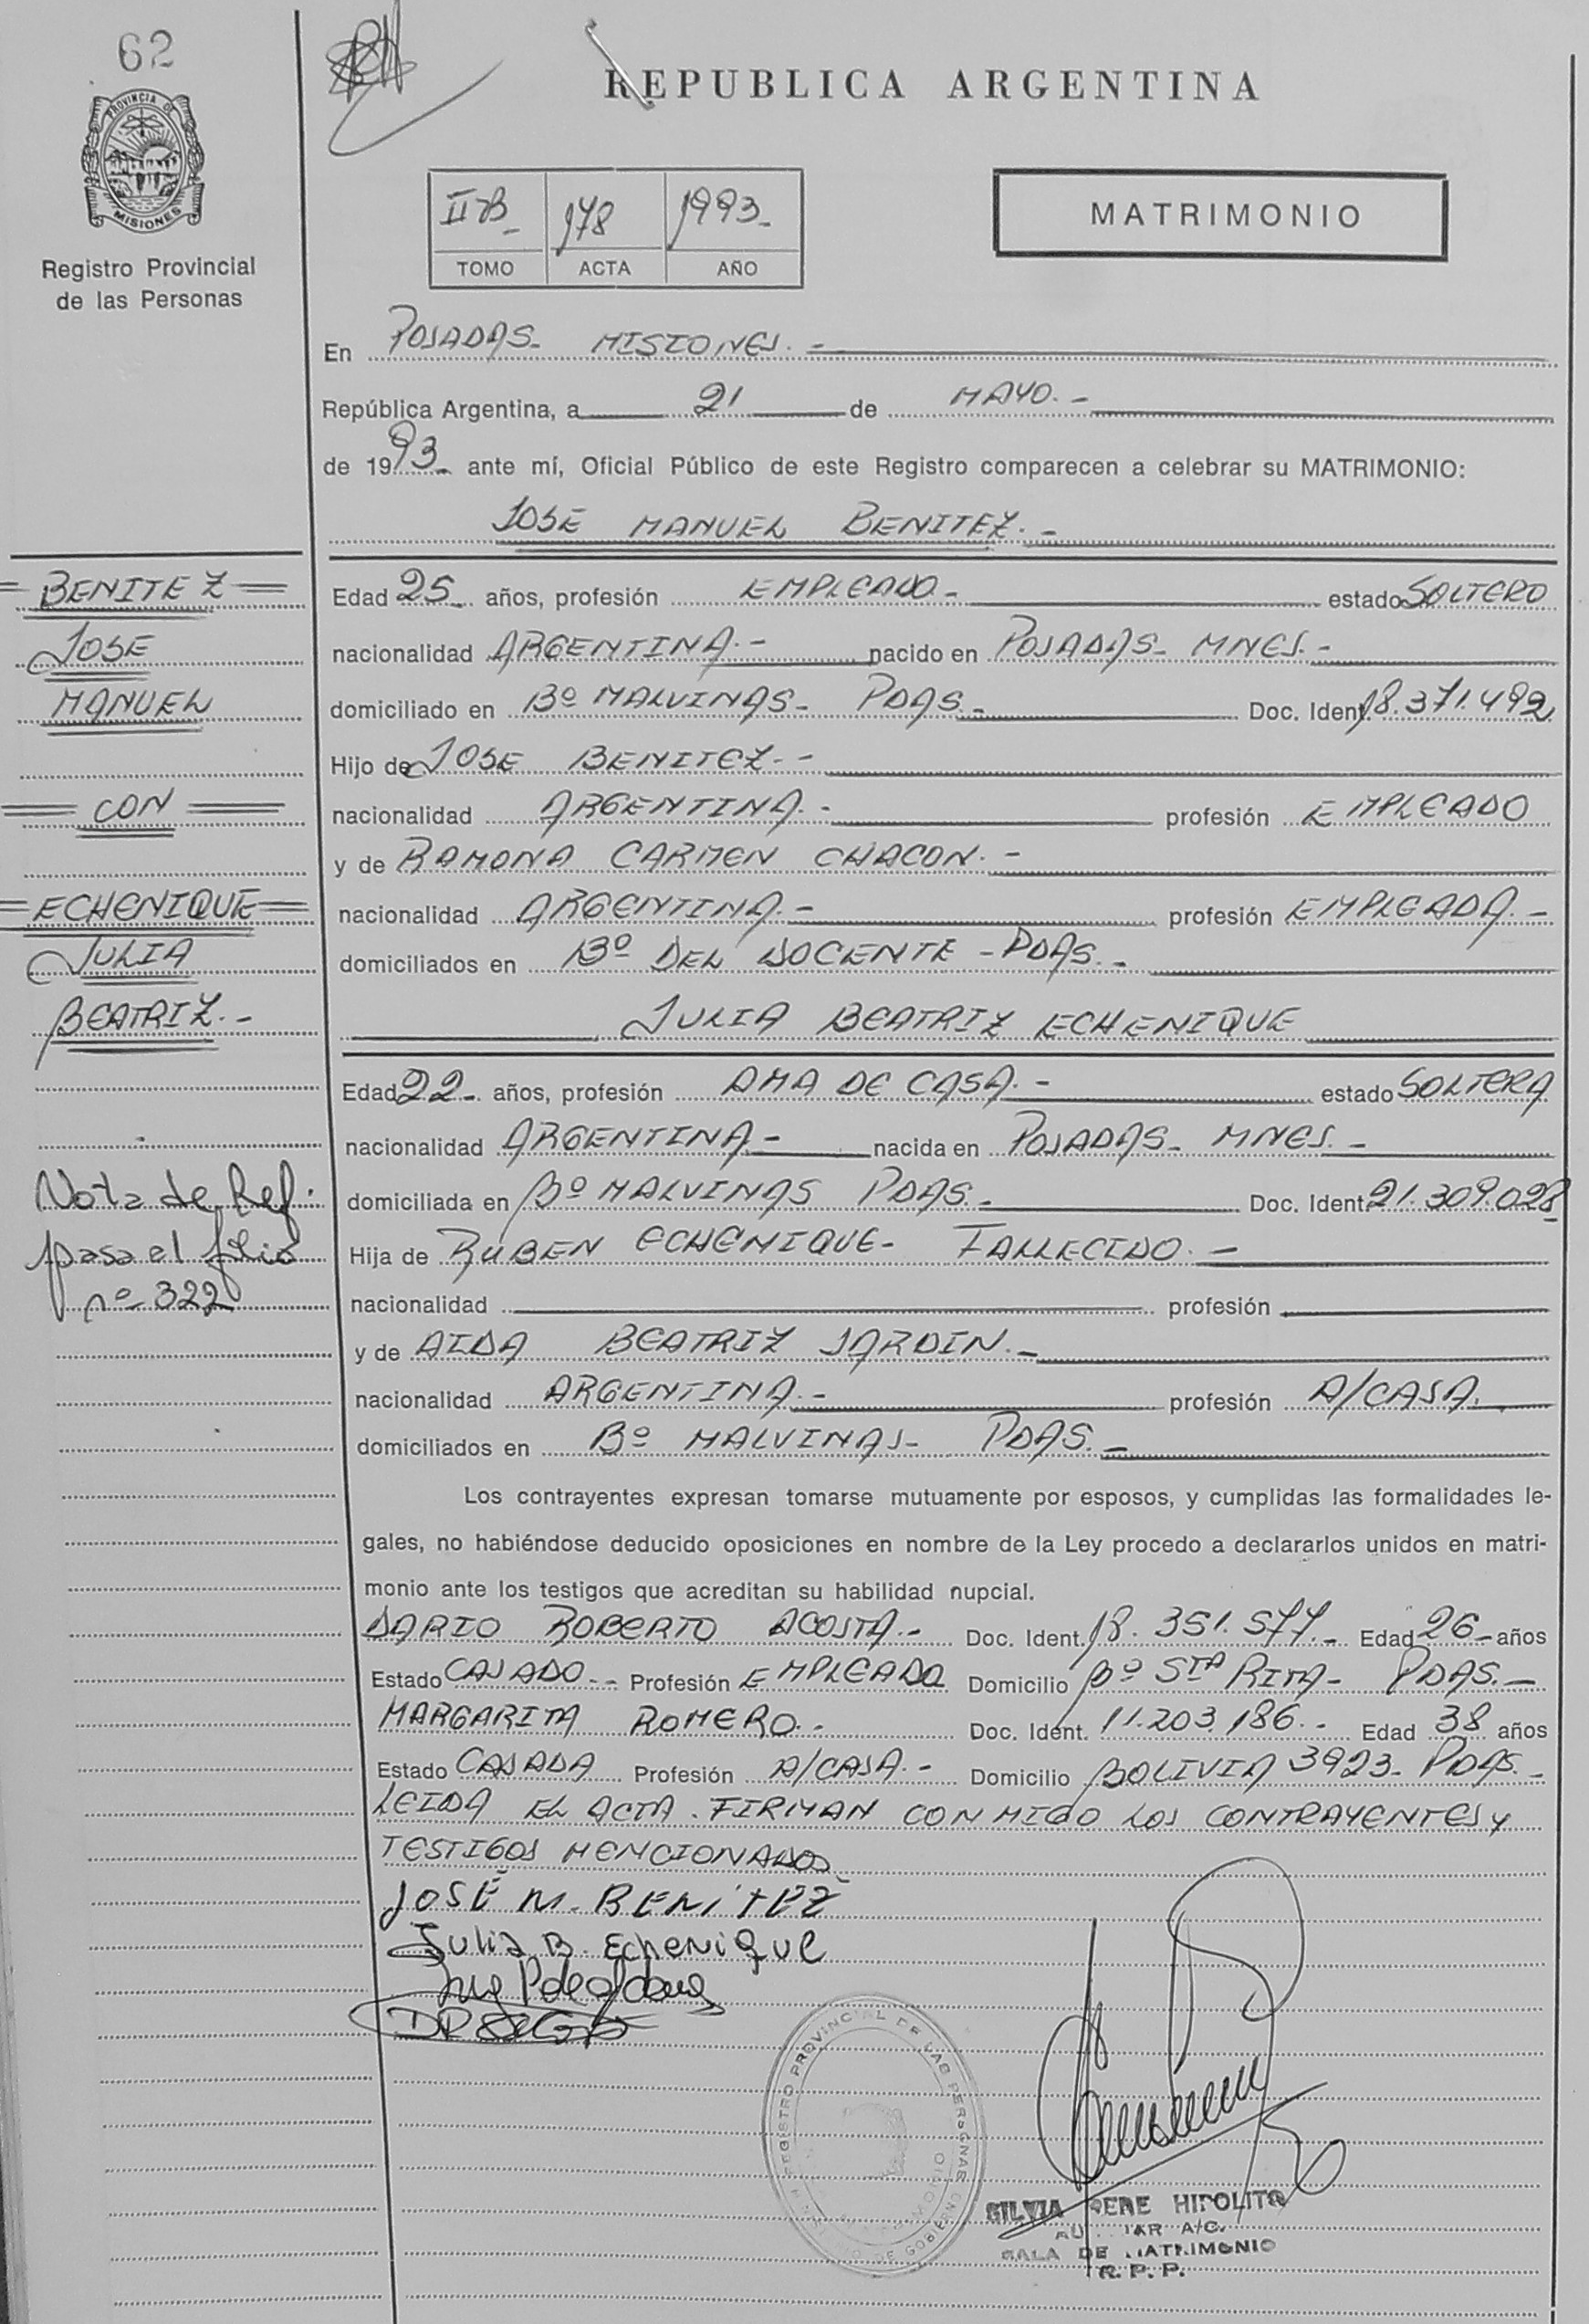 62
PROVINCIA DE
MISIONES
Registro Provincial
de las Personas
REPUBLICA ARGENTINA
MATRIMONIO
II B - 178 1993 -
TOMO ACTA AÑO
En POSADAS - MISIONES. -
República Argentina, a 21 de MAYO. -
de 1993 - ante mí, Oficial Público de este Registro comparecen a celebrar su MATRIMONIO:
JOSE MANUEL BENITEZ. -
BENITEZ
JOSE
MANUEL
CON
ECHENIQUE
JULIA
BEATRIZ. -
Edad 25 - años, profesión EMPLEADO - estado SOLTERO
nacionalidad ARGENTINA. - nacido en POSADAS - MNES. -
domiciliado en Bº MALVINAS - PDAS - Doc. Ident. 18.371.492
Hijo de JOSE BENITEZ. -
nacionalidad ARGENTINA. - profesión EMPLEADO
y de RAMONA CARMEN CHACON. -
nacionalidad ARGENTINA. - profesión EMPLEADA. -
domiciliados en Bº DEL DOCENTE - PDAS. -
JULIA BEATRIZ ECHENIQUE
Edad 22 - años, profesión AMA DE CASA. - estado SOLTERA
nacionalidad ARGENTINA - nacida en POSADAS - MNES. -
domiciliada en Bº MALVINAS PDAS. - Doc. Ident. 21.309.028
Hija de RUBEN ECHENIQUE - FALLECIDO. -
nacionalidad profesión
y de AIDA BEATRIZ JARDIN. -
nacionalidad ARGENTINA. - profesión A/CASA.
domiciliados en Bº MALVINAS - PDAS. -
Nota de Ref:
pasa el folio
nº 322
Los contrayentes expresan tomarse mutuamente por esposos, y cumplidas las formalidades le-
gales, no habiéndose deducido oposiciones en nombre de la Ley procedo a declararlos unidos en matri-
monio ante los testigos que acreditan su habilidad nupcial.
DARIO ROBERTO ACOSTA. - Doc. Ident. 18.351.577. - Edad 26 - años
Estado CASADO. - Profesión EMPLEADO Domicilio Bº STA RITA - PDAS. -
MARGARITA ROMERO. - Doc. Ident. 11.203.186. - Edad 38 años
Estado CASADA Profesión A/CASA. - Domicilio BOLIVIA 3923 - PDAS. -
LEIDA EL ACTA. FIRMAN CONMIGO LOS CONTRAYENTES y
TESTIGOS MENCIONADOS
JOSÉ M. BENÍTEZ
Julia B. Echenique
REGISTRO PROVINCIAL DE LAS PERSONAS
DE GOBIERNO
SILVIA RENE HIPOLITO
A/C.
SALA DE MATRIMONIO
R. P. P.